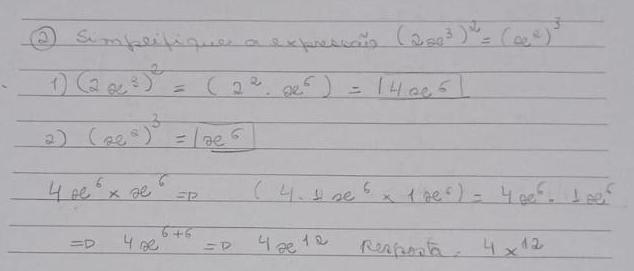 ② Simplifique a expressão (2x³)² = (x²)³
1) (2x³)² = (2² · x⁶) = |4x⁶|
2) (x²)³ = |x⁶|
4x⁶ × x⁶ => (4 · 1x⁶ × 1x⁶) = 4x⁶ · 1x⁶
=> 4x⁶⁺⁶ => 4x¹² Resposta. 4x¹²